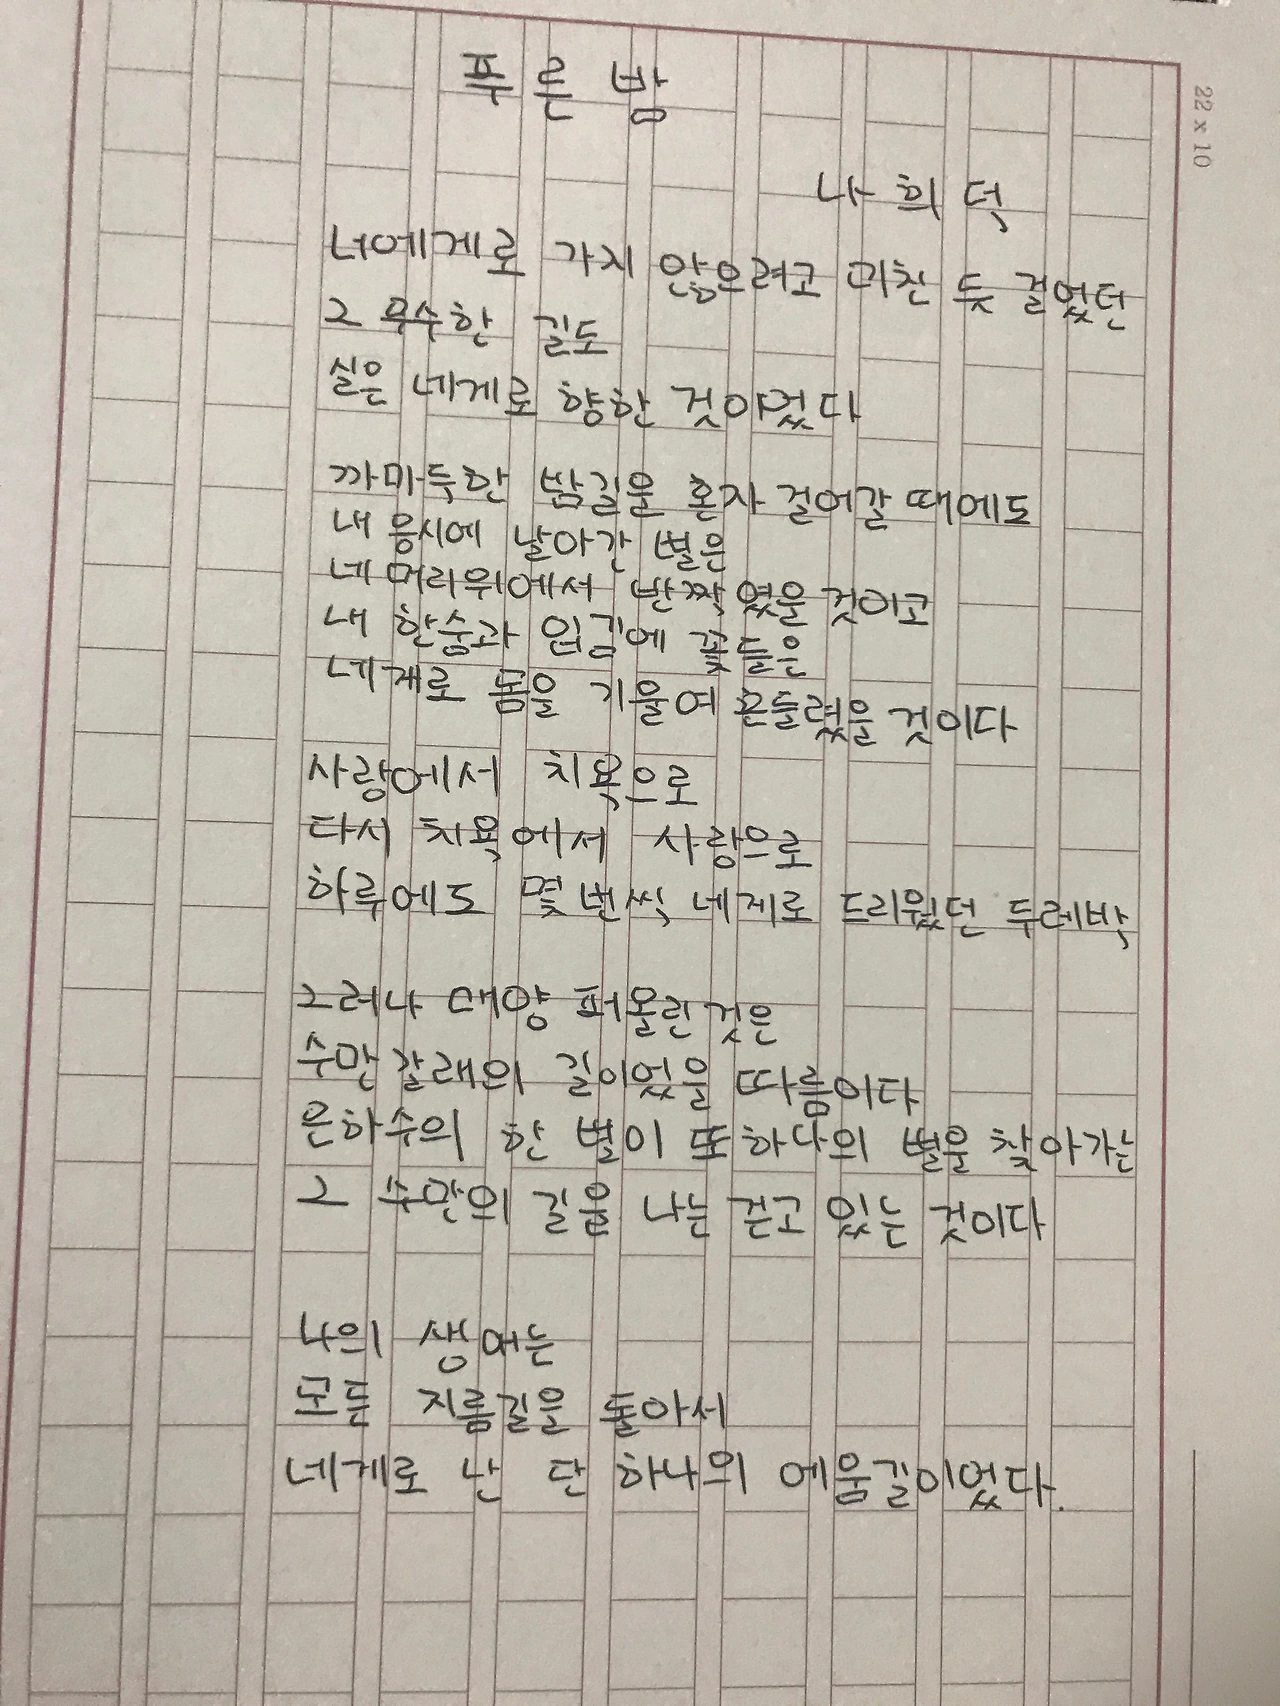 푸른 밤
나 희 덕
너에게로 가지 않으려고 미친 듯 걸었던
그 무수한 길도
실은 네게로 향한 것이었다
까마득한 밤길을 혼자 걸어갈 때에도
내 응시에 날아간 별은
네 머리위에서 반짝였을 것이고
내 한숨과 입김에 꽃들은
네게로 몸을 기울여 흔들렸을 것이다
사랑에서 치욕으로
다시 치욕에서 사랑으로
하루에도 몇 번씩 네게로 드리웠던 두레박
그러나 매양 퍼올린 것은
수만 갈래의 길이었을 따름이다
은하수의 한 별이 또 하나의 별을 찾아가는
그 수만의 길을 나는 걷고 있는 것이다
나의 생애는
모든 지름길을 돌아서
네게로 난 단 하나의 에움길이었다.
22 x 10